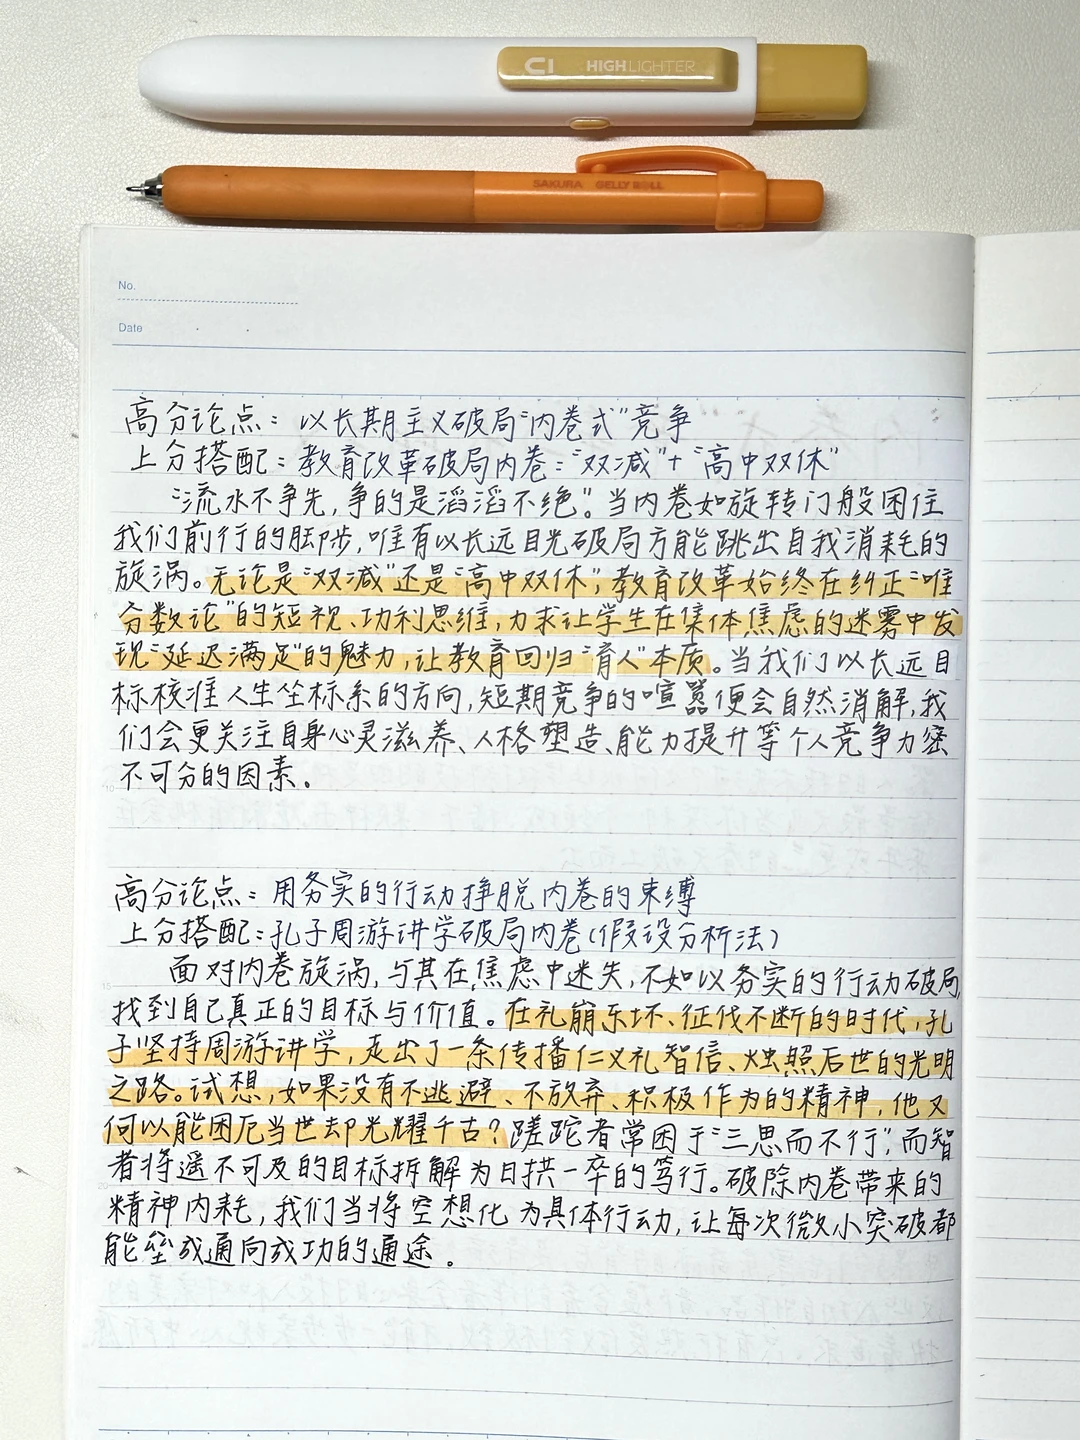 CI HIGHLIGHTER
SAKURA GELLY ROLL
No.
Date
高分论点：以长期主义破局“内卷式”竞争
上分搭配：教育改革破局内卷：“双减”+“高中双休”
“流水不争先，争的是滔滔不绝”。当内卷如旋转门般困住
我们前行的脚步，唯有以长远目光破局方能跳出自我消耗的
旋涡。无论是“双减”还是“高中双休”，教育改革始终在纠正“唯
分数论”的短视、功利思维，力求让学生在集体焦虑的迷雾中发
现“延迟满足”的魅力，让教育回归“育人”本质。当我们以长远目
标校准人生坐标系的方向，短期竞争的喧嚣便会自然消解，我
们会更关注自身心灵滋养、人格塑造、能力提升等个人竞争力密
不可分的因素。
高分论点：用务实的行动挣脱内卷的束缚
上分搭配：孔子周游讲学破局内卷（假设分析法）
面对内卷旋涡，与其在焦虑中迷失，不如以务实的行动破局，
找到自己真正的目标与价值。在礼崩乐坏、征伐不断的时代，孔
子坚持周游讲学，走出了一条传播仁义礼智信、烛照后世的光明
之路。试想，如果没有不逃避、不放弃、积极作为的精神，他又
何以能困厄当世却光耀千古？蹉跎者常困于“三思而不行”，而智
者将遥不可及的目标拆解为日拱一卒的笃行。破除内卷带来的
精神内耗，我们当将空想化为具体行动，让每次微小突破都
能垒成通向成功的通途。
5
10
15